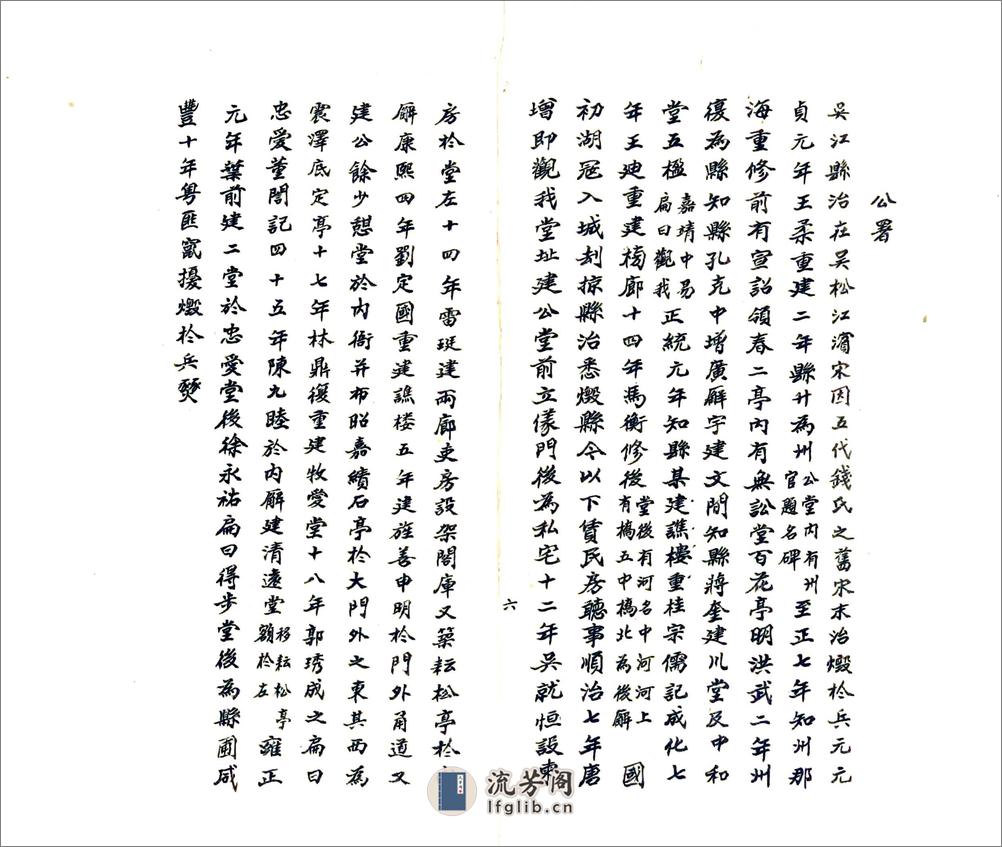 公署
吳江縣治在吳松江濱宋因五代錢氏之舊宋末治燬於兵元元
貞元年王柔重建二年縣廾為州公堂內有州官題名碑至正七年知州那
海重修前有宣詔領春二亭內有無訟堂百花亭明洪武二年州
復為縣知縣孔克中增廣廨宇建文間知縣蔣奎建川堂及中和
堂五楹嘉靖中易扁曰觀我正統元年知縣某建譙樓重桂宗儒記成化七
年王迪重建兩廊十四年馬衡修後堂後有河名中河河上有橋五中橋北為後廨國
初湖冦入城刦掠縣治悉燬縣令以下賃民房聽事順治七年唐
增即觀我堂址建公堂前立儀門後為私宅十二年吳就恒設東
六
房於堂左十四年雷珽建兩廊吏房設架閣庫又築耘松亭於
廨康熙四年劉定國重建譙楼五年建旌善申明於門外甬道又
建公餘少憩堂於內衙并布昭嘉績石亭於大門外之東其西為
震澤底定亭十七年林鼎復重建牧愛堂十八年郭琇成之扁曰
忠愛董誾記四十五年陳九睦於內廨建清遠堂移耘松亭額於左雍正
元年葉前建二堂於忠愛堂後徐永祐扁曰得步堂後為縣圃咸
豐十年粵匪竄擾燬於兵燹
流芳阁
lfglib.cn